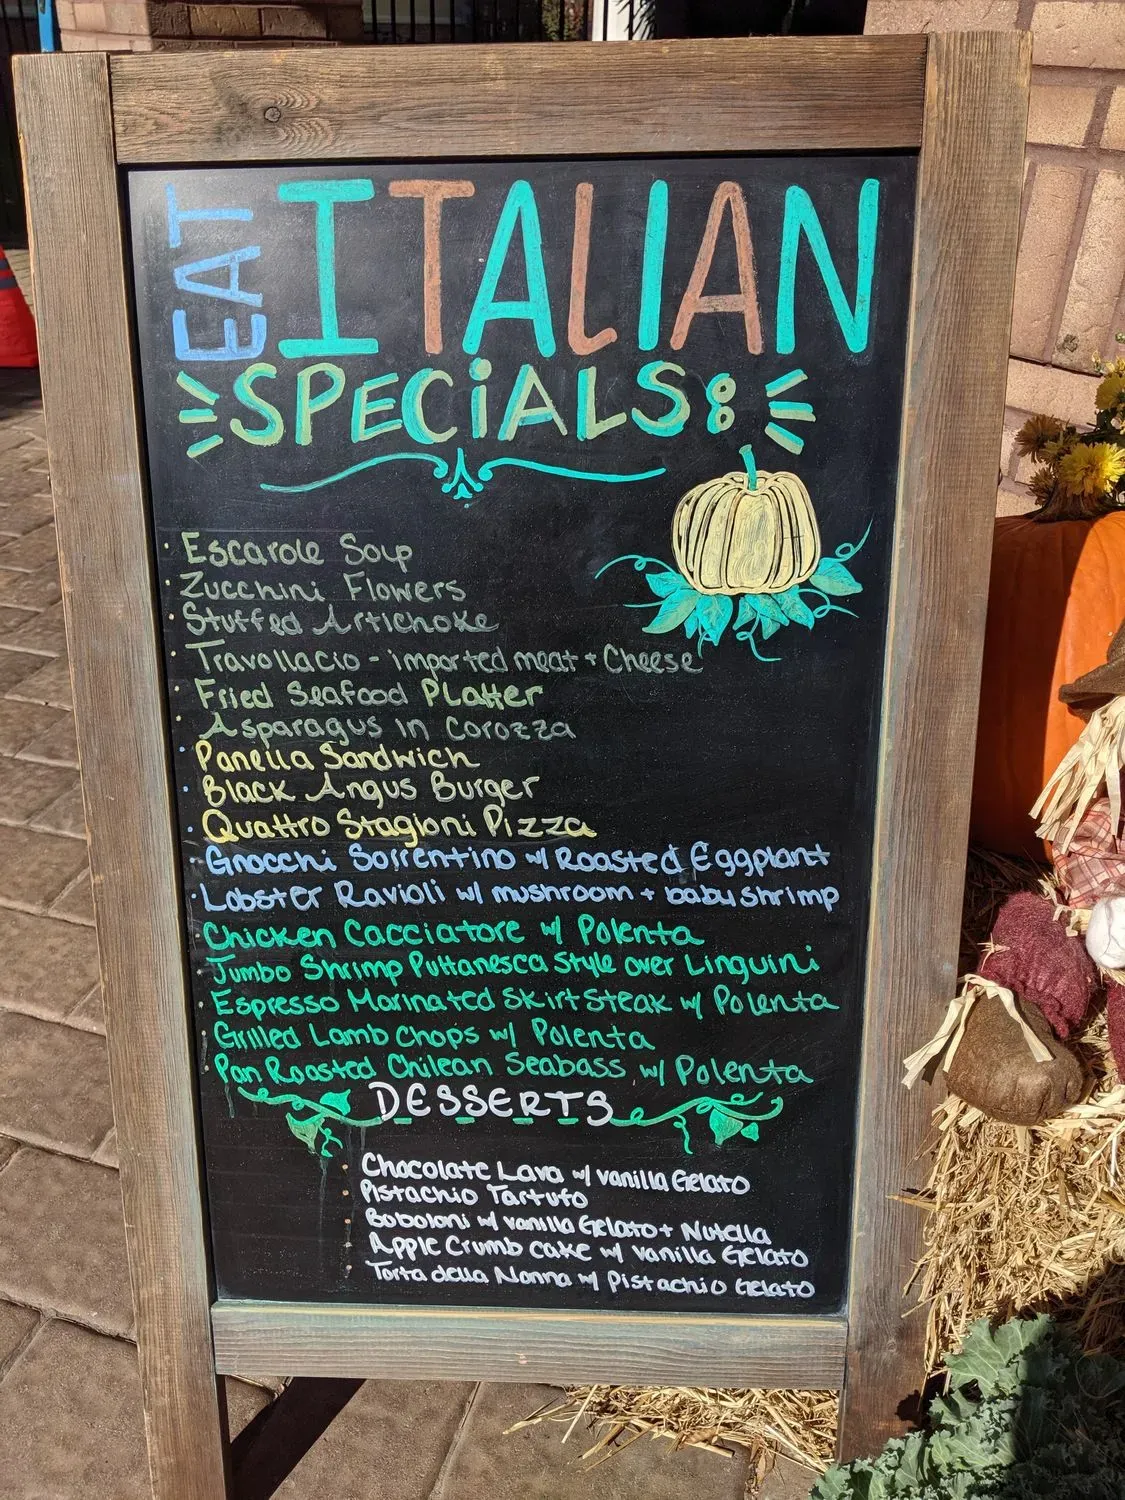 EAT ITALIAN
SPECiALS:
· Escarole Soup
· Zucchini Flowers
· Stuffed Artichoke
· Travollacio - imported meat + Cheese
· Fried Seafood Platter
· Asparagus in Corozza
· Panella Sandwich
· Black Angus Burger
· Quattro Stagioni Pizza
· Gnocchi Sorrentino w/ Roasted Eggplant
· Lobster Ravioli w/ mushroom + baby shrimp
· Chicken Cacciatore w/ Polenta
· Jumbo Shrimp Puttanesca Style over Linguini
· Espresso Marinated Skirt Steak w/ Polenta
· Grilled Lamb Chops w/ Polenta
· Pan Roasted Chilean Seabass w/ Polenta
DESSERTS
· Chocolate Lava w/ vanilla Gelato
· Pistachio Tartufo
· Boboloni w/ vanilla Gelato + Nutella
· Apple Crumb cake w/ vanilla Gelato
· Torta della Nonna w/ Pistachio Gelato